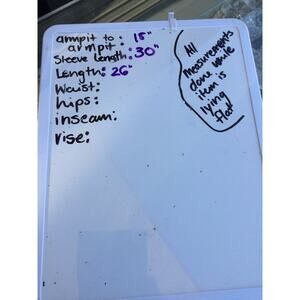 armpit to : 15"
armpit
Sleeve Length: 30"
Length: 26"
Waist:
hips:
inseam:
rise:
All
measurements
done while
item is
lying
flat